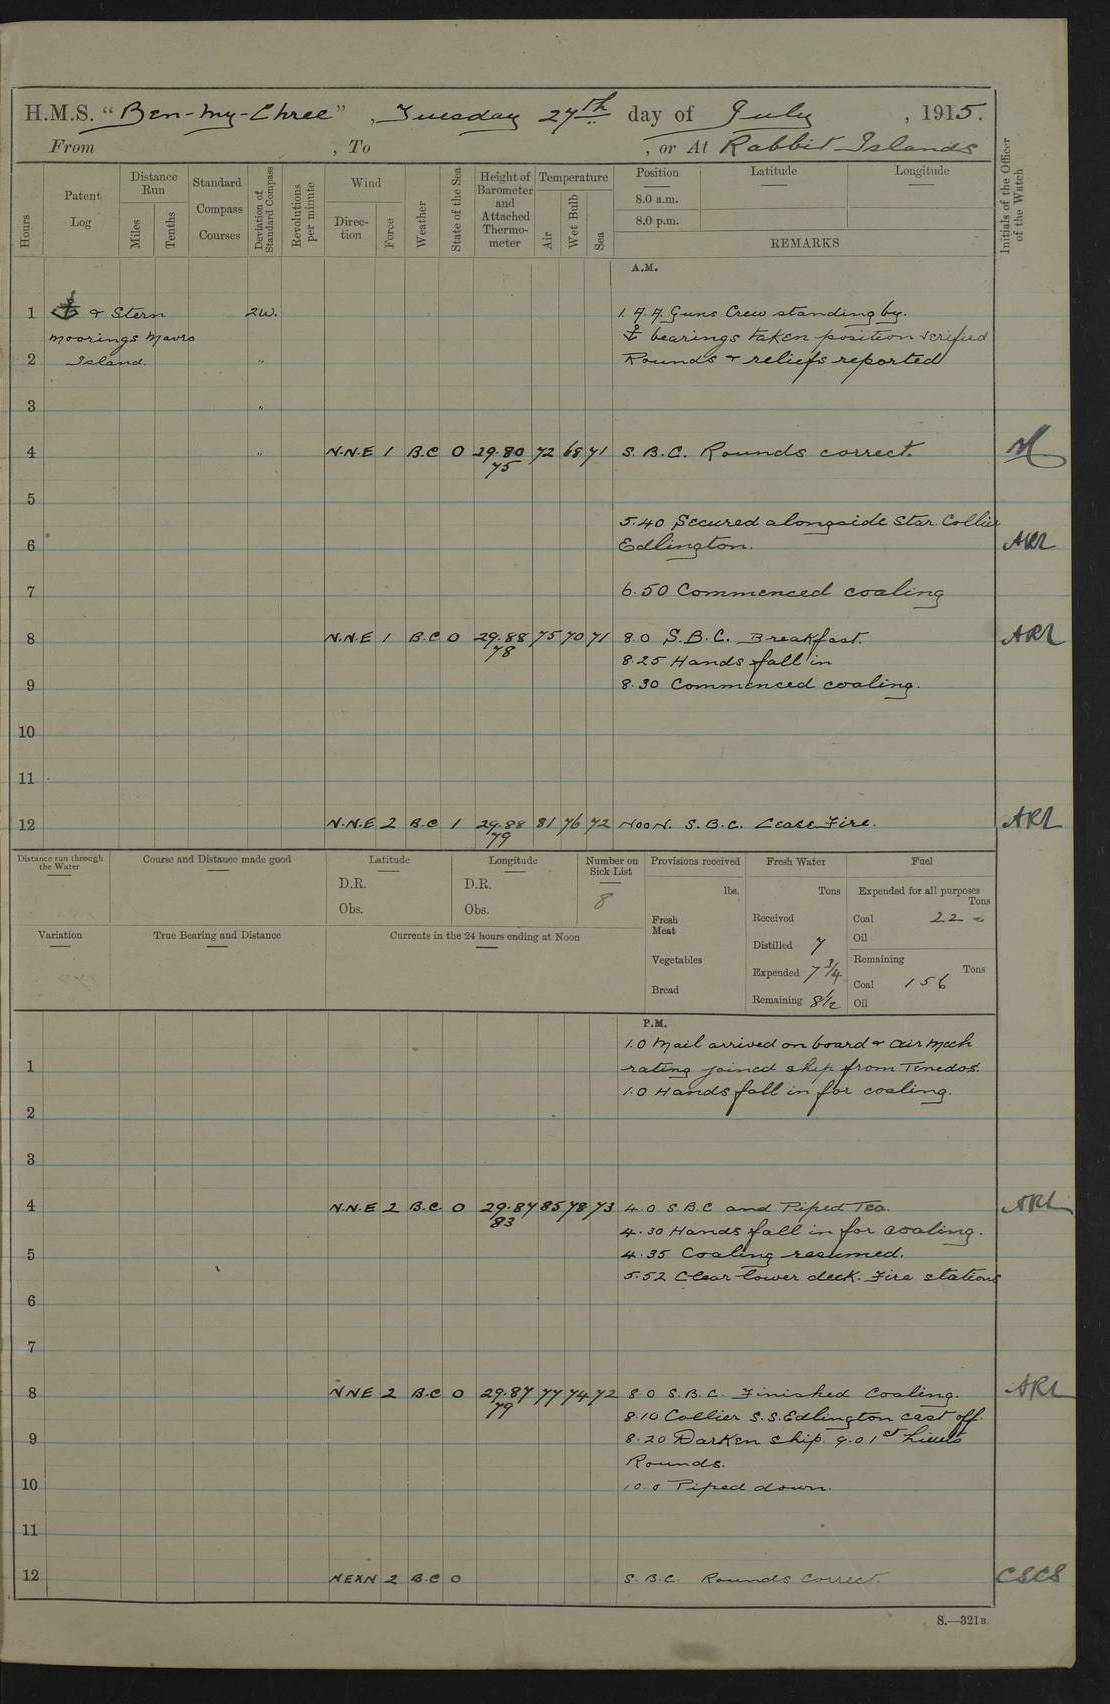 H.M.S. "Ben-my-Chree", Tuesday 27th day of July, 1915.
From , To , or At Rabbit Islands
Hours
Patent Log
Distance Run
Miles
Tenths
Standard Compass Courses
Deviation of Standard Compass
Revolutions per minute
Wind
Direction
Force
Weather
State of the Sea
Height of Barometer and Attached Thermometer
Temperature
Air
Wet Bulb
Sea
Position
8.0 a.m.
8.0 p.m.
Latitude
Longitude
REMARKS
Initials of the Officer of the Watch
A.M.
1 ⚓ & Stern 2W. 1. A.A. Guns Crew standing by.
moorings Mavro ⚓ bearings taken position verified
2 Island. " Rounds & reliefs reported
3 "
4 " N.N.E 1 B.C 0 29.80 72 68 71 S.B.C. Rounds correct.
75
5
5.40 Secured alongside Star. Collier
6 Edlington. ARL
7 6.50 Commenced coaling
8 N.N.E 1 B.C 0 29.88 75 70 71 8.0 S.B.C. Breakfast. ARL
78 8.25 Hands fall in
9 8.30 Commenced coaling.
10
11
12 N.N.E 2 B.C 1 29.88 81 76 72 Noon. S.B.C. Cease Fire. ARL
79
Distance run through the Water
Course and Distance made good
Latitude
D.R.
Obs.
Longitude
D.R.
Obs.
Number on Sick List
8
Provisions received
lbs.
Fresh Meat
Vegetables
Bread
Fresh Water
Tons
Received
Distilled 7
Expended 7 3/4
Remaining 8 1/2
Fuel
Expended for all purposes
Tons
Coal 22
Oil
Remaining
Tons
Coal 156
Oil
Variation
True Bearing and Distance
Currents in the 24 hours ending at Noon
P.M.
1.0 Mail arrived on board & Air Mech
1 rating joined ship from Tenedos.
1.0 Hands fall in for coaling.
2
3
4 N.N.E 2 B.C. 0 29.87 85 78 73 4.0 S.B.C and Piped Tea. ARL
83 4.30 Hands fall in for coaling.
5 4.35 Coaling resumed.
5.52 Clear lower deck. Fire stations
6
7
8 NNE 2 B.C 0 29.87 77 74 72 8.0 S.B.C. Finished Coaling. ARL
79 8.10 Collier S.S. Edlington cast off
9 8.20 Darken ship. 9.0 1st Lieuts
Rounds.
10 10.0 Piped down.
11
12 NEXN 2 B.C 0 S.B.C. Rounds correct. CSCS
S.—321B.